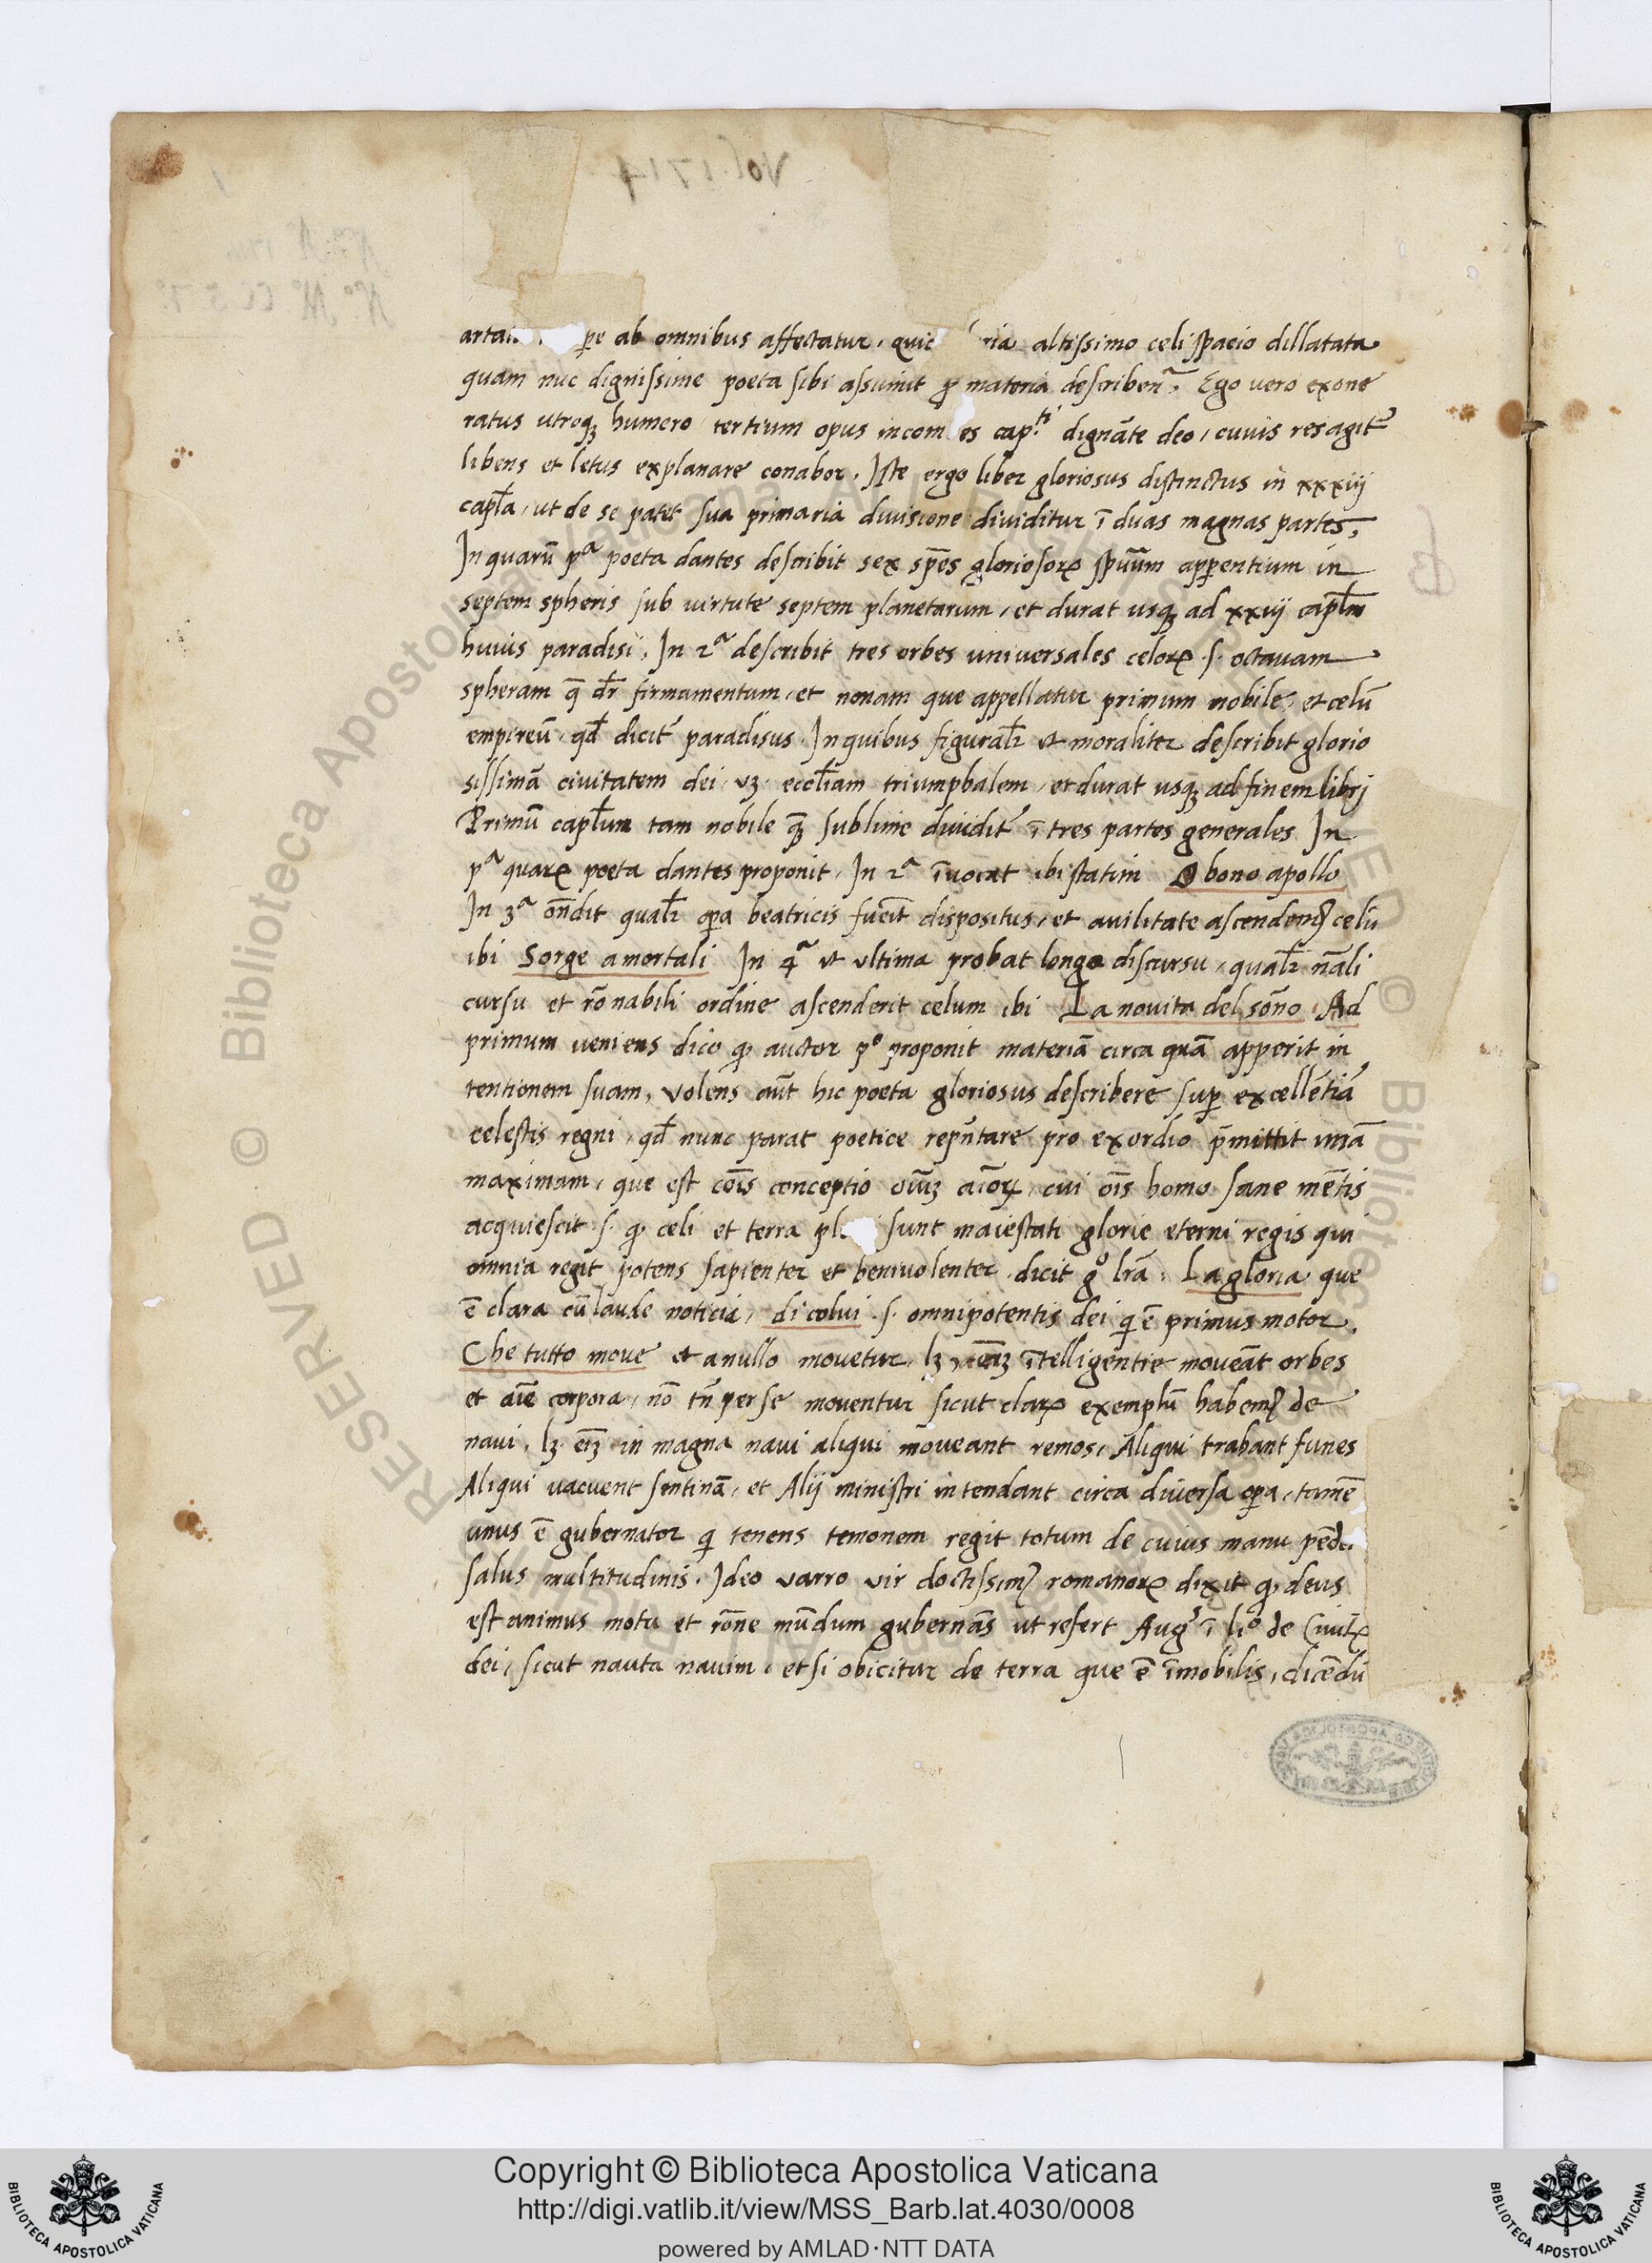 ab omnibus affectatur, altissimo celi spacio dillatata
quam nūc dignissime poeta sibi assumit ꝓ materia describenᵃ, Ego vero exone
ratus utroqꝫ humero tertium opus cap.ᵗⁱ dignāte deo, cuius res agit᷑
libens et letus explanare conabor. Iste ergo liber gloriosus distinctus in xxxiij
capl̄a, ut de se patet sua primaria divisione dividitur ī duas magnas partes,
In quarū pᵃ poeta dantes describit sex spēs gloriosoꝝ spūum apꝑentium in
septem spheris sub virtute septem planetarum, et durat usqꝫ ad xxiij capl̄m
huius paradisi. In 2ᵃ describit tres orbes universales celoꝝ .s. octavam
spheram q̄ dr̄ firmamentum, et nonam que appellatur primum mobile, et celū
empireū, qđ dicit᷑ paradisus. In quibus figural᷑r et moraliter describit glorio
sissimā civitatem dei vꝫ. eccl̄iam triumphalem, et durat usqꝫ ad finem libri
Primū capl̄um tam nobile qꝫ sublime dividit᷑ ī tres partes generales In
pᵃ quaꝝ poeta dantes proponit, In 2ᵃ īvocat ibi statim O bono apollo
In 3ᵃ ōndit qual᷑r oꝑa beatricis fuerit dispositus, et avilitate ascendendꝰ celū
ibi Sorge a mortali In 4ᵃ et ultima probat longo discursu, qual᷑r nāli
cursu et rōnabili ordine ascenderit celum ibi La novita del sōno Ad
primum veniens dico ꝙ auctor pᵒ proponit materiā circa quā apperit in
tentionem suam, volens aūt hic poeta gloriosus describere suꝑ excellētiā
celestis regni, qđ nunc parat poetice repn̄tare pro exordio p̄mittit unā
maximam, que est cōis conceptio oīuꝫ aīoꝝ, cui oīs homo sane mētis
acquiescit .s. ꝙ celi et terra sunt maiestati glorie eterni regis qui
omnia regit potens sapienter et benivolenter. dicit gᵒ lr̄a. La gloria que
ē clara cū laude noticia, di colui .s. omnipotentis dei q̄ ē primus motor.
Che tutto move et a nullo movetur, lꝫ. eīꝫ ītelligentie moveāt orbes
et aīe corpora, nō tn̄ per se moventur sicut claꝝ exemplū habemꝰ de
navi, lꝫ. eīꝫ in magna navi aliqui moveant remos, Aliqui trahant funes
Aliqui vacuent sentinā, et Alij ministri intendant circa diversa oꝑa, tamē
unus ē gubernator q̄ tenens temonem regit totum de cuius manu
salus multitudinis. Ideo varro vir doctissimꝰ romanoꝝ dixit ꝙ deus
est animus motu et rōne mūdum gubernās ut refert Augꝰ ī liᵒ de Civit̄
dei, sicut nauta navim, et si obicitur de terra que ē īmobilis, dicēdū
Copyright © Biblioteca Apostolica Vaticana
http://digi.vatlib.it/view/MSS_Barb.lat.4030/0008
powered by AMLAD·NTT DATA
BIBLIOTECA APOSTOLICA VATICANA
BIBLIOTECA APOSTOLICA VATICANA